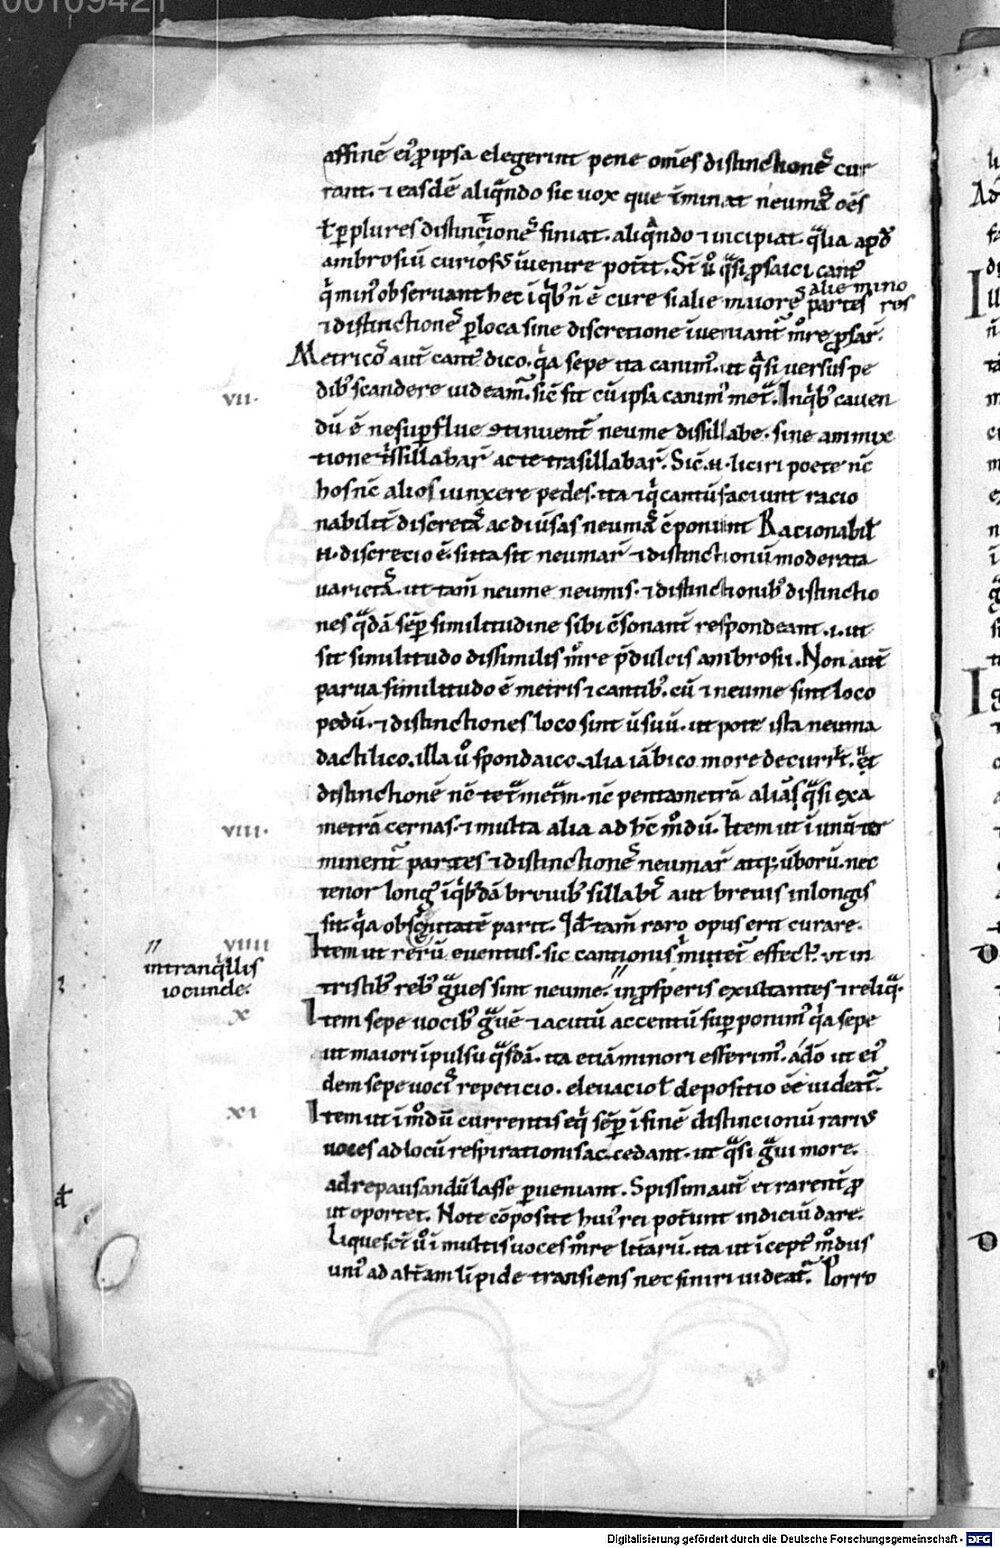 00109421
affinē ei᷒ p̄ ipsa elegerint pene om̄es distinctionē cur
rant. ⁊ easdē aliqᷓndo sic uox que t̄minat neumaˢ oēs
ł p̱ plures distinctioneˢ finiat. aliqᷓndo ⁊ incipiat. qᷓlia apđ
ambrosiū curiosꝰ īuenire pot̄it. St̄ ů qᷓsi p̱saici cantꝰ
qͥ minꝰ obseruant hec ī qͥbꝫ n̄ ē cure si alie maioreˢ alie mino
partes res
⁊ distinctioneˢ p̱ loca sine discretione īueniant̄ mͦre p̱sar̄.
Metricoˢ aut̄ cantꝰ dico. qͥa sepe ita canimꝰ. ut qᷓsi uersus pe
vii.
dibꝫ scandere uideam̄. sic̄ fit cū ipsa canimꝰ metᷓ. In qͥbꝫ cauen
dū ē ne sup̱flue ꝯtinuent̄ neume dissillabe. sine ammix
tione tͥssillabar̄ ac tetrasillabar̄. Sic̄ .n. liciri poete nc̄
hos nc̄ alios iunxere pedes. ita ⁊ qͥ cantū faciunt racio
nabilit̄ discretaˢ ac diūsas neumaˢ cōponunt Racionabilˀ
.n. discrecio ē. si ita fit neumar̄ ⁊ distinctionū moderata
uarietaˢ. ut tam̄ neume neumis. ⁊ distinctionibꝫ distinctio
nes qᷓdā sēp̱ similitudine sibi cōsonant̄ respondeant .i. ut
sit similitudo dissimilis mͦre p̄dulcis ambrosii. Non aut̄
parua similitudo ē metris ⁊ cantibꝫ. cū ⁊ neume sint loco
pedū. ⁊ distinctiones loco sint ūsuū. ut pote ista neuma
dactilico. illa ů spondaico. alia iābico more decurrͥt. et
distinctionē nc̄ tetᷓmetͣm. nc̄ pentametrā aliās qᷓsi exa
viii.
metrā cernas. ⁊ multa alia ad hc̄ mͦdū. Item ut ī unū ter
minentͬ partes ⁊ distinctioneˢ neumar̄ atqꝫ ūborū. nec
tenor longꝰ ī qͥbꝫdā breuibꝫ sillabiˢ aut breuis in longis
sit. qͥa obscuritatē parit. Id tam̄ raro opus erit curare.
viiii
Item ut rerū euentus. sic cantionis imitetͬ effectꝰ. ut in
tristibꝫ rebꝫ gᷓues sint neume. // in p̱speris exultantes ⁊ reliqᷓ.
// in tranqͥllis
iocunde.
x
Item sepe uocibꝫ gᷓuē ⁊ acutū accentū sup̱ponimꝰ. qͥa sepe
ut maiori īpulsu qᷓsdā. ita etiā minori efferimꝰ. ádō ut eiꝰ
dem sepe uociˢ repeticio. eleuacio ł depositio eē uideatͬ.
xi
Item ut ī mͦdū currentis eqͥ sēp̱ ī finē distincionū rariꝰ
uoces ad locū respirationis accedant. ut qᷓsi gᷓui more.
ad repausandū lasse p̱ueniant. Spissim aut̄ et rarent̄ p̱
ut oportet. Note cōposite huiꝰ rei pot̄unt indiciū dare.
Liquescꝰt ů ī multis uoces mͦre litt̄arū. ita ut īceptꝰ mͦdus
uniꝰ ad alt̄am lipide transiens nec finiri uideatͬ. Porro
Digitalisierung gefördert durch die Deutsche Forschungsgemeinschaft - DFG